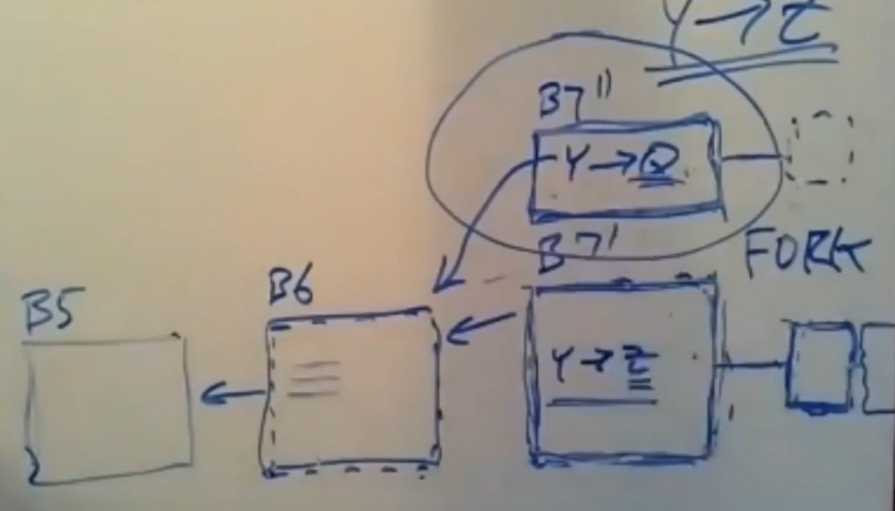 Y → Z
B7''
Y → Q
B7'
FORK
B6
B5
Y → Z